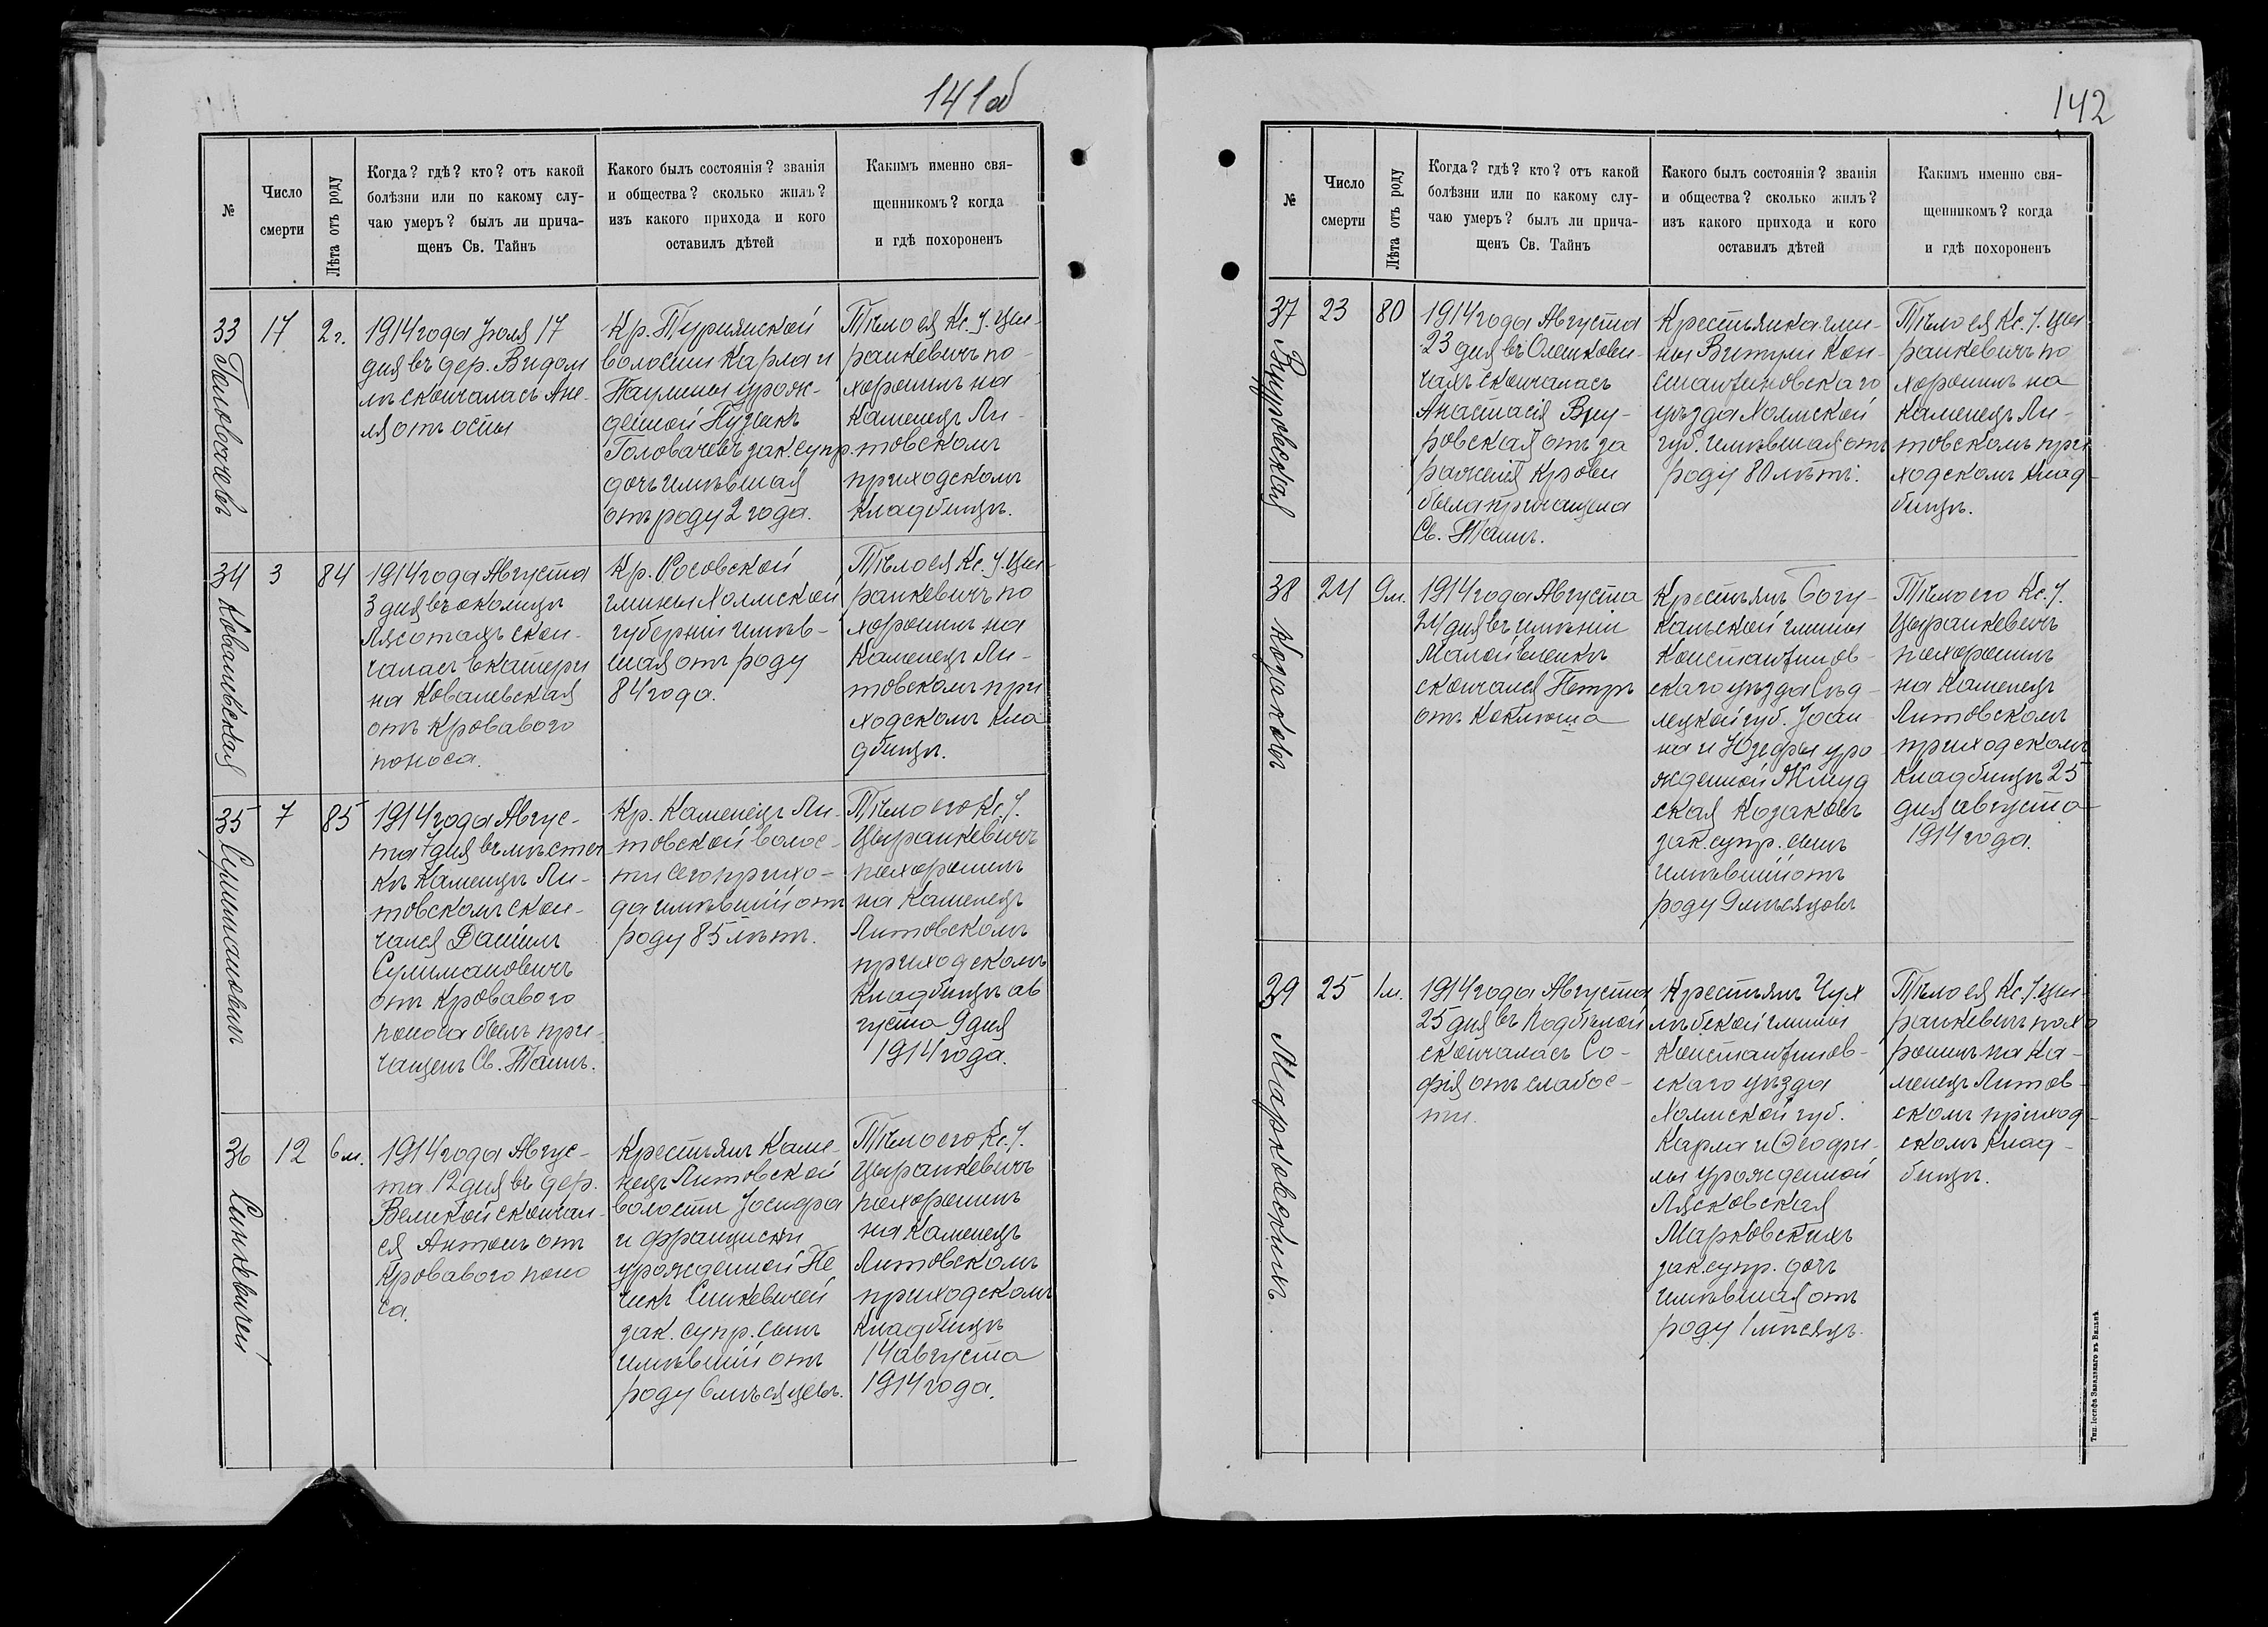 141об
№
Число
смерти
Лѣта отъ роду
Когда? гдѣ? кто? отъ какой
болѣзни или по какому слу-
чаю умеръ? былъ ли прича-
щенъ Св. Тайнъ
Какого былъ состоянія? званія
и общества? сколько жилъ?
изъ какого прихода и кого
оставилъ дѣтей
Какимъ именно свя-
щенникомъ? когда
и гдѣ похороненъ
33
Головачевъ
17
2 г.
1914 года Іюля 17
дня въ дер. Видом
лѣ скончалась Ане-
ля отъ оспы
Кр. Туринской
волости Карла и
Паулины урож-
денной Пузыкъ
Головачевъ зак. супр.
дочь имѣвшая
отъ роду 2 года.
Тѣло ея Кс. У. Цы-
ранкевичъ по-
хоронилъ на
Каменецъ Ли-
товскомъ
приходскомъ
кладбищѣ.
34
Ковалевская
3
84
1914 года Августа
3 дня въ околицѣ
Лясотахъ скон-
чалась Екатери
на Ковалевская
отъ кроваваго
поноса.
Кр. Росовской
гмины Холмской
губерніи имѣв-
шая отъ роду
84 года.
Тѣло ея Кс. У. Цы-
ранкевичъ по
хоронилъ на
Каменецъ Ли-
товскомъ при
ходскомъ кла
дбищѣ.
35
Сулимановичъ
7
85
1914 года Авгус-
та 7 дня въ мѣстеч
кѣ Каменцѣ Ли-
товскомъ скон-
чался Даніилъ
Сулимановичъ
отъ кроваваго
поноса былъ при-
чащенъ Св. Таинъ.
Кр. Каменецъ Ли-
товской волос-
ти сего прихо-
да имѣвшій отъ
роду 85 лѣтъ.
Тѣло его Кс. У.
Цыранкевичъ
похоронилъ
на Каменецъ
Литовскомъ
приходскомъ
кладбищѣ ав
густа 9 дня
1914 года.
36
Синкевичей
12
6 м.
1914 года Авгус-
та 12 дня въ дер.
Великой скончал-
ся Антонъ отъ
кроваваго поно
са.
Крестьянъ Каме-
нецъ Литовской
волости Іосифа
и Франциски
урожденной Пе
чикъ Синкевичей
зак. супр. сынъ
имѣвшій отъ
роду 6 мѣсяцевъ.
Тѣло его Кс. У.
Цыранкевичъ
похоронилъ
на Каменецъ
Литовскомъ
приходскомъ
кладбищѣ
14 августа
1914 года.
142
№
Число
смерти
Лѣта отъ роду
Когда? гдѣ? кто? отъ какой
болѣзни или по какому слу-
чаю умеръ? былъ ли прича-
щенъ Св. Тайнъ
Какого былъ состоянія? званія
и общества? сколько жилъ?
изъ какого прихода и кого
оставилъ дѣтей
Какимъ именно свя-
щенникомъ? когда
и гдѣ похороненъ
37
23
80
1914 года Августа
23 дня въ Олешкови-
чахъ скончалась
Анастасія
ровская отъ за
раженія крови
была причащена
Св. Таинъ.
Крестьянка гми-
ны Витули Кон-
стантиновскаго
уѣзда Холмской
губ. имѣвшая отъ
роду 80 лѣтъ.
Тѣло ея Кс. У. Цы-
ранкевичъ по
хоронилъ на
Каменецъ Ли-
товскомъ при
ходскомъ клад-
бищѣ.
38
Козаковъ
24
9 м.
1914 года Августа
24 дня въ имѣніи
Малой Еленкѣ
скончался Петръ
отъ коклюша
Крестьянъ Богу-
кальской гмины
Константинов-
скаго уѣзда Сѣд-
лецкой губ. Іоан-
на и Юзефы уро
жденной Жмуд
ская Козаковъ
зак. супр. сынъ
имѣвшій отъ
роду 9 мѣсяцовъ
Тѣло его Кс. У.
Цыранкевичъ
похоронилъ
на Каменецъ
Литовскомъ
приходскомъ
кладбищѣ 25
дня августа
1914 года.
39
Марковскихъ
25
1 м.
1914 года Августа
25 дня въ Подбѣлой
скончалась Со-
фія отъ слабос-
ти.
Крестьянъ Чух
лѣбской гмины
Константинов-
скаго уѣзда
Холмской губ.
Карла и Ѳеофи-
лы урожденной
Лясковская
Марковскихъ
зак. супр. дочь
имѣвшая отъ
роду 1 мѣсяцъ.
Тѣло ея Кс. У. Цы-
ранкевичъ похо
ронилъ на Ка-
менецъ Литов-
скомъ приход-
скомъ клад-
бищѣ.
Тип. Іосифа Завадзкаго въ Вильнѣ